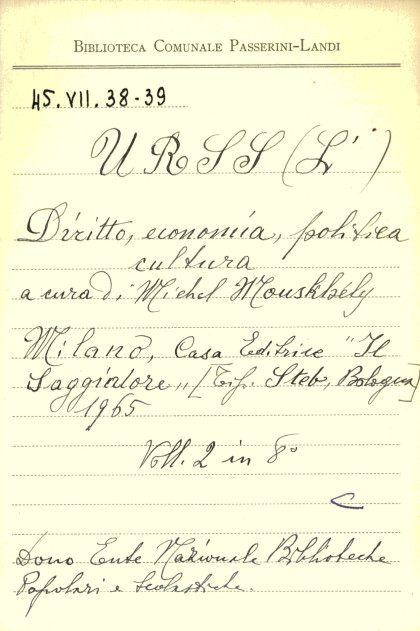 BIBLIOTECA COMUNALE PASSERINI-LANDI
45.VII.38-39
URSS (L')
Diritto, economia, politica
cultura
a cura di Michel Mouskhély
Milano, Casa Editrice "Il
Saggiatore", [Tip. Steb, Bologna]
1965
Voll. 2 in 8°
C
Dono Ente Nazionale Biblioteche
Popolari e Scolastiche.